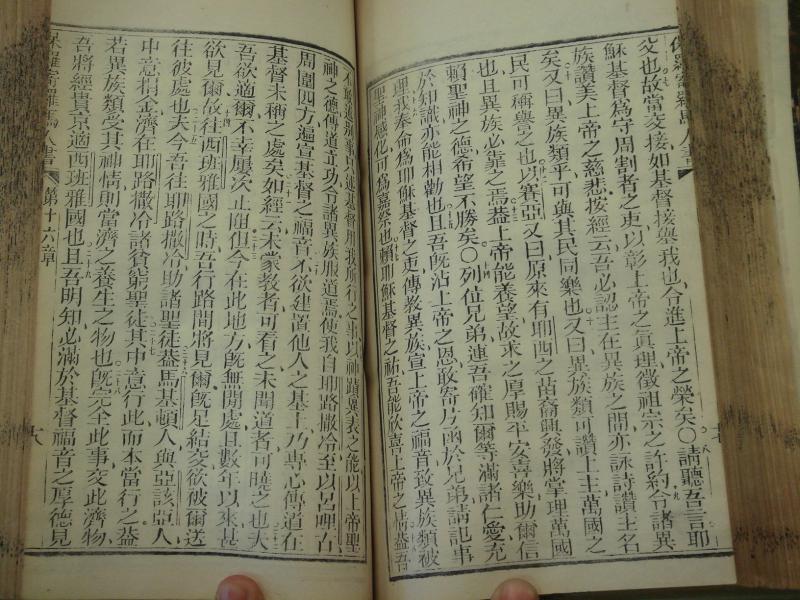 保羅寄羅馬人書
父也故當交接如基督接集我也令進上帝之榮矣〇請聽吾言耶
穌基督為守周割者之吏以彰上帝之真理徵祖宗之許約令諸異
族讚美上帝之慈悲按經云吾必認主在異族之間亦詠詩讚主名
矣又曰異族類乎可與其民同樂也又曰異族類可讚上主萬國之
民可稱譽之也以賽亞又曰原來有耶西之苗裔興發將掌理萬國
也且異族必靠之焉蓋上帝能養望故求之厚賜平安喜樂助爾信
賴聖神之德希望不勝矣〇列位兄弟連吾確知爾等滿諸仁愛充
於知識亦能相勸也且吾既沾上帝之恩敢寄片函於兄弟請記事
理我奉命為耶穌基督之吏傳教異族宣上帝之福音致異族類被
聖神感化可為嘉祭也賴耶穌基督之祐吾能欣喜上帝之情蓋吾
不敢述別事只述基督用我所行之事以神蹟異表之能以上帝聖
神之德傳道立功令諸異族服道焉使我自耶路撒冷至以呂哩古
周圍四方遍宣基督之福音不欲建置他人之基上乃專心傳道在
基督未稱之處矣如經云未蒙教者可看之未聞道者可曉之也夫
吾欲適爾不幸屢次止阻但今在此地方既無閒處且數年以來甚
欲見爾故往西班雅國之時吾行路間將見爾既足結交欲被爾送
往彼處也夫今吾往耶路撒冷助諸聖徒蓋馬基頓人與亞該亞人
中意捐金濟在耶路撒冷諸貧窮聖徒其中意行此而本當行之蓋
若異族類受其神情則當濟之養生之物也既完全此事交此濟物
吾將經貴京適西班雅國也且吾明知必滿於基督福音之厚德見
保羅寄羅馬人書 第十六章